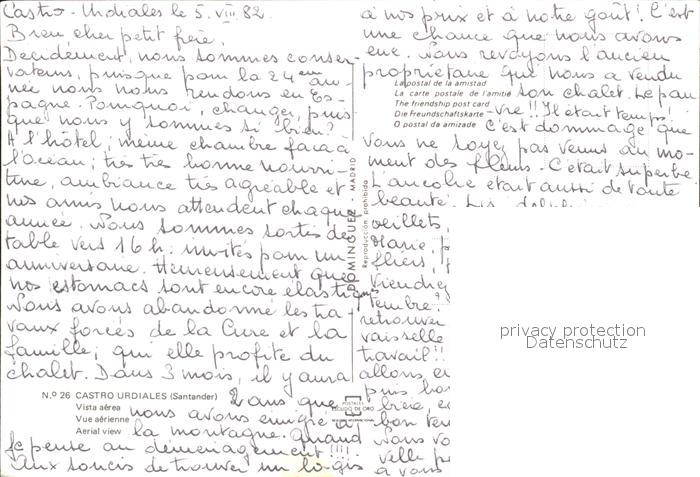 Castro-Urdiales le 5. VIII 82
Bien cher petit frère,
Decidément, nous sommes conser-
vateurs, puisque pour la 24ème an-
née nous nous rendons en Es-
pagne. Pourquoi, changer, puis
que nous y sommes si bien?
A l'hôtel; même chambre face à
l'océan; très très bonne nourri-
ture, ambiance très agréable et
nos amis nous attendent chaque
année. Nous sommes sortis de
table vers 16 h. invités pour un
anniversaire. Heureusement que
nos estomacs sont encore élastiques
Nous avons abandonné les tra
vaux forcés de la Cure et la
famille; qui elle profite du
chalet. Dans 3 mois, il y aura
2 ans que
nous avons émigré à
la montagne. Quand
je pense au déménagement !!!!
Aux soucis de trouver un logis
N.º 26 CASTRO URDIALES (Santander)
Vista aérea
Vue aérienne
Aerial view
DOMINGUEZ - MADRID
Reproducción prohibida
POSTALES
ESCUDO DE ORO
à nos prix et à notre goût! C'est
une chance que nous avons
eue. Nous revoyons l'ancien
propriétaire que nous a vendu
son chalet. Le pau
vre!! Il était temps!
C'est dommage que
La postal de la amistad
La carte postale de l'amitié
The friendship post card
Die Freundschaftskarte
O postal da amizade
vous ne soyez pas venus au mo-
ment des fleurs. C'était superbe
l'ancolie était aussi de toute
beauté. Les
oeillets,
Marie,
fliers,
Viendre
tembre?
retrouver
vaisselle
travail!!
allons
puis
bon
Nous vo
velle p
à vous
privacy protection
Datenschutz